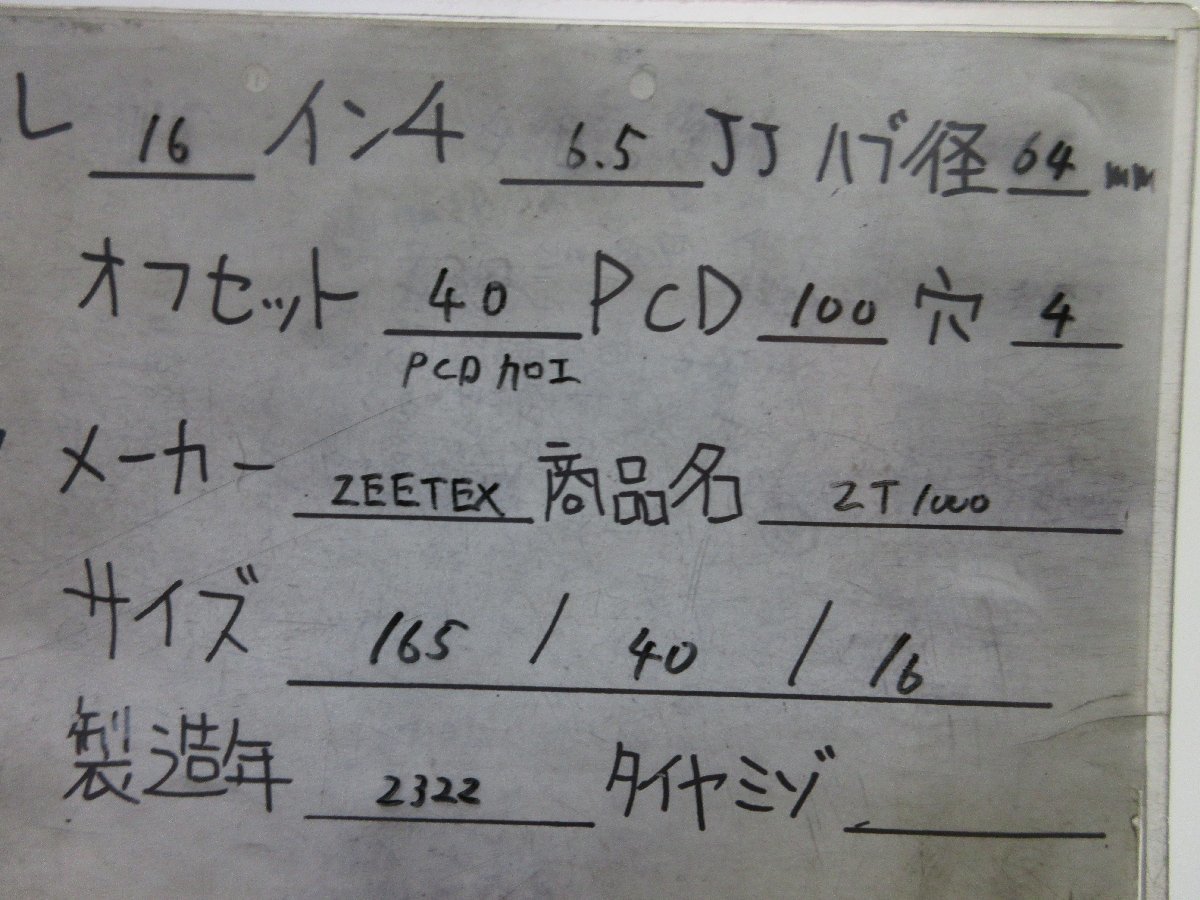 レ 16 インチ 6.5 JJ ハブ径 64 mm
オフセット 40 PCD 100 穴 4
PCD加工
メーカー ZEETEX 商品名 ZT1000
サイズ 165 / 40 / 16
製造年 2322 タイヤミゾ